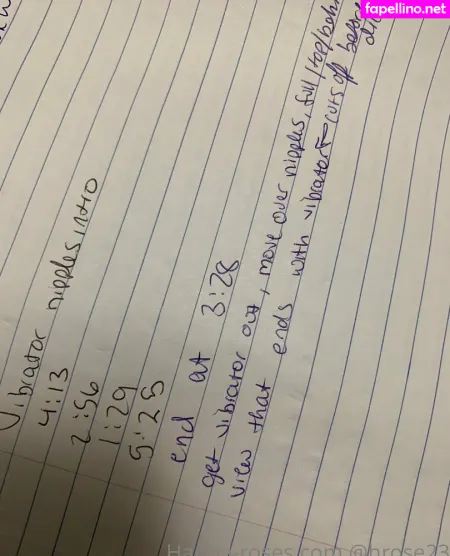 fapellino.net
Vibrator nipples intro
4:13
2:56
1:29
5:25
end at 3:28
get vibrator out, move over nipples, full/top/
view that ends with vibrator cuts off before
roses.com @hrose23